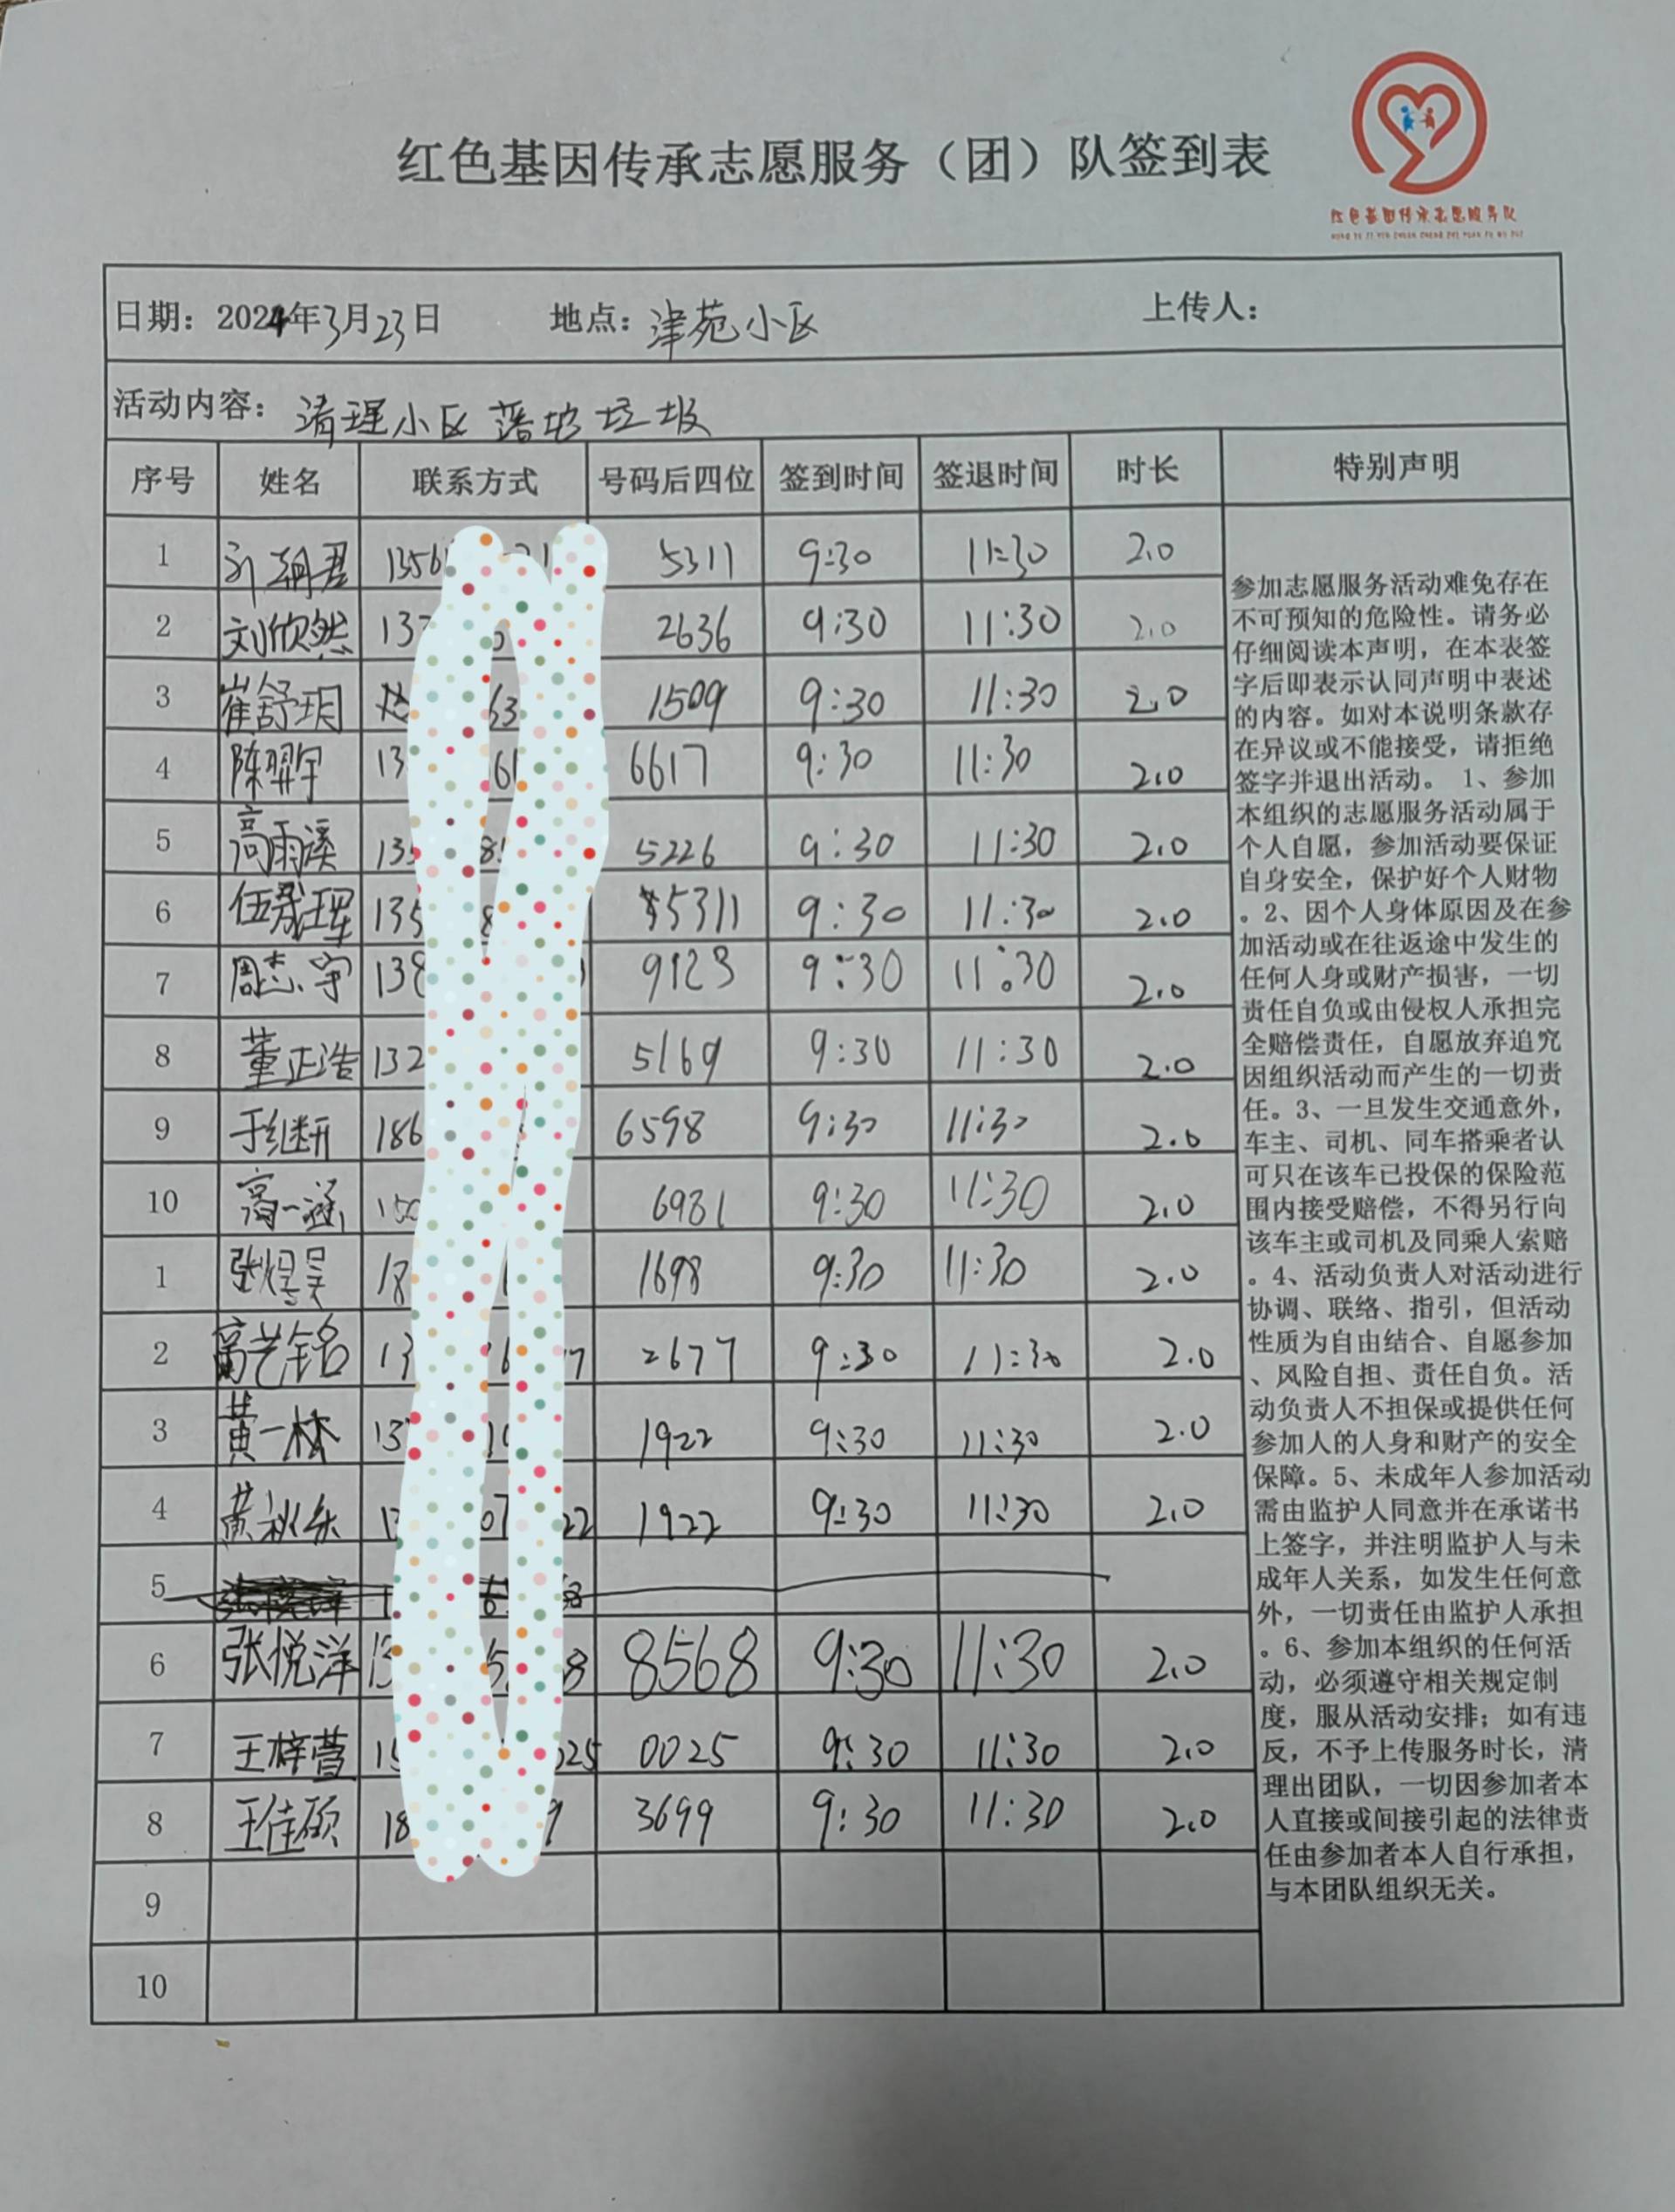 红色基因传承志愿服务（团）队签到表
红色基因传承志愿服务队
HONG SE JI YIN CHUAN CHENG ZHI YUAN FU WU DUI
日期：2024年3月23日 地点：津苑小区 上传人：
活动内容：清理小区落地垃圾
序号 姓名 联系方式 号码后四位 签到时间 签退时间 时长 特别声明
1 1356 5311 9:30 11:30 2.0
2 刘欣然 137 2636 9:30 11:30 2.0
3 崔舒玥 63 1509 9:30 11:30 2.0
4 陈羿宇 13 6617 9:30 11:30 2.0
5 高雨溪 135 5226 9:30 11:30 2.0
6 伍晟珲 135 5311 9:30 11:30 2.0
7 周志宇 138 9123 9:30 11:30 2.0
8 董正浩 132 5169 9:30 11:30 2.0
9 于继研 186 6598 9:30 11:30 2.0
10 高一涵 150 6981 9:30 11:30 2.0
1 张煜昊 18 1698 9:30 11:30 2.0
2 高艺铭 13 2677 9:30 11:30 2.0
3 黄一林 13 1922 9:30 11:30 2.0
4 黄秋乐 13 22 1922 9:30 11:30 2.0
5
6 张悦洋 13 8 8568 9:30 11:30 2.0
7 王梓萱 15 025 0025 9:30 11:30 2.0
8 王佳硕 18 9 3699 9:30 11:30 2.0
9
10
参加志愿服务活动难免存在
不可预知的危险性。请务必
仔细阅读本声明，在本表签
字后即表示认同声明中表述
的内容。如对本说明条款存
在异议或不能接受，请拒绝
签字并退出活动。 1、参加
本组织的志愿服务活动属于
个人自愿，参加活动要保证
自身安全，保护好个人财物
。2、因个人身体原因及在参
加活动或在往返途中发生的
任何人身或财产损害，一切
责任自负或由侵权人承担完
全赔偿责任，自愿放弃追究
因组织活动而产生的一切责
任。3、一旦发生交通意外，
车主、司机、同车搭乘者认
可只在该车已投保的保险范
围内接受赔偿，不得另行向
该车主或司机及同乘人索赔
。4、活动负责人对活动进行
协调、联络、指引，但活动
性质为自由结合、自愿参加
、风险自担、责任自负。活
动负责人不担保或提供任何
参加人的人身和财产的安全
保障。5、未成年人参加活动
需由监护人同意并在承诺书
上签字，并注明监护人与未
成年人关系，如发生任何意
外，一切责任由监护人承担
。6、参加本组织的任何活
动，必须遵守相关规定制
度，服从活动安排；如有违
反，不予上传服务时长，清
理出团队，一切因参加者本
人直接或间接引起的法律责
任由参加者本人自行承担，
与本团队组织无关。